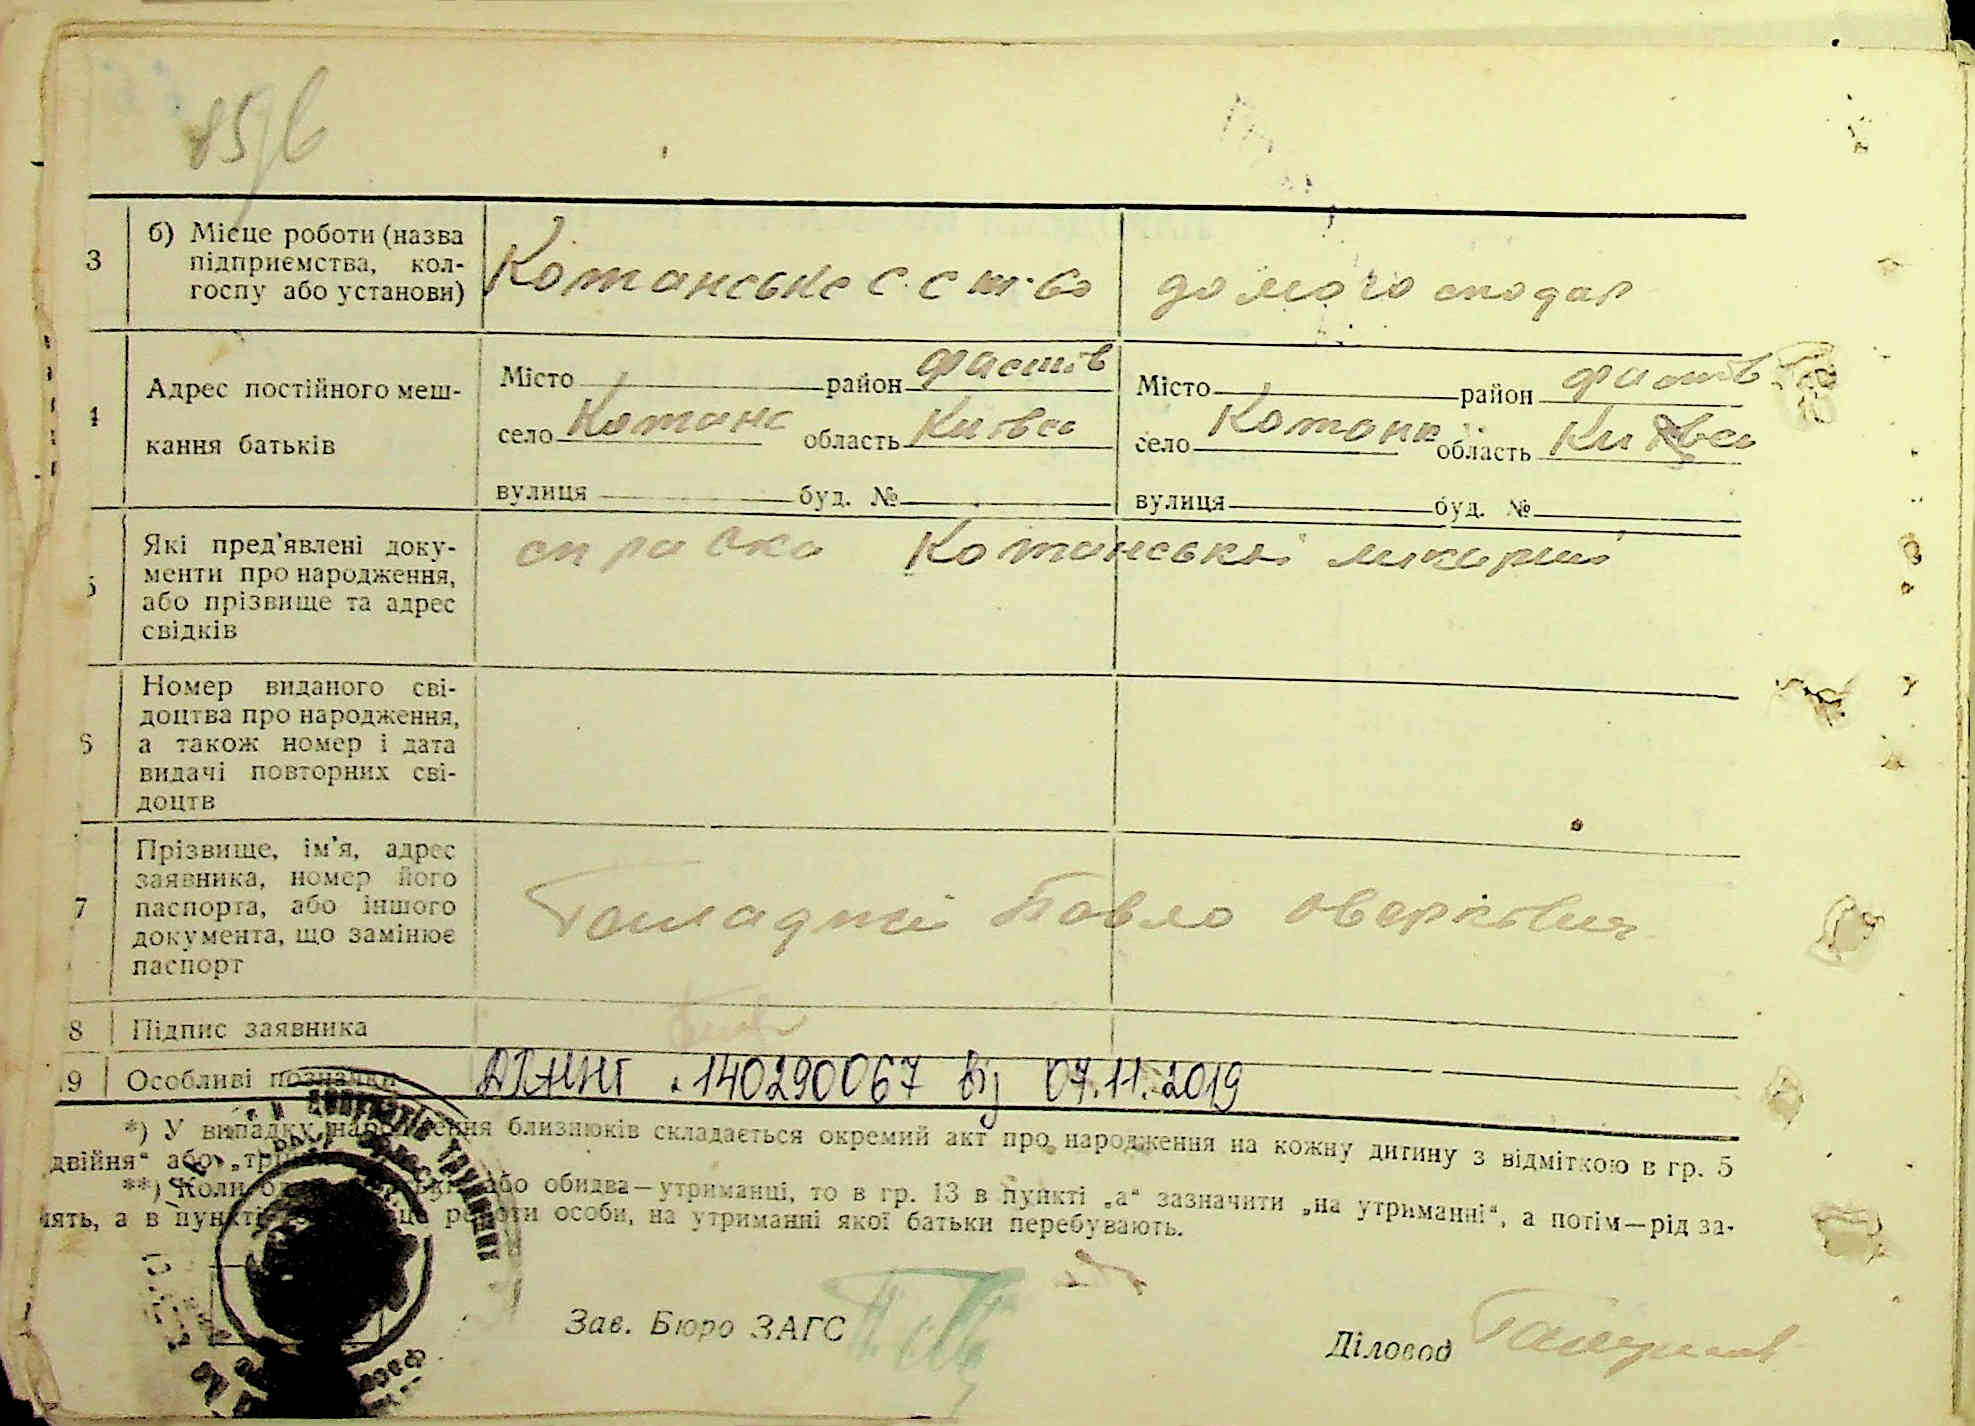 3 б) Місце роботи (назва підприємства, кол-госпу або установи) Котанське с. с т-во домогосподар
4 Адрес постійного меш-кання батьків
Місто район Фастів Місто район Фастів
село Котане область Київсь село Котани область Київсь
вулиця буд. № вулиця буд. №
5 Які пред'явлені доку-
менти про народження,
або прізвище та адрес
свідків
справка Котанської лікарні
6 Номер виданого сві-
доцтва про народження,
а також номер і дата
видачі повторних сві-
доцтв
7 Прізвище, ім'я, адрес
заявника, номер його
паспорта, або іншого
документа, що замінює
паспорт
Павло Оверкович
8 Підпис заявника
19 Особливі позначки 140290067 від 07.11.2019
*) У випадку народження близнюків складається окремий акт про народження на кожну дитину з відміткою в гр. 5
двійня" або „трійня
**) Коли або обидва—утриманці, то в гр. 13 в пункті „а" зазначити „на утриманні", а потім—рід за-
нять, а в пункті роботи особи, на утриманні якої батьки перебувають.
Зав. Бюро ЗАГС
Діловод